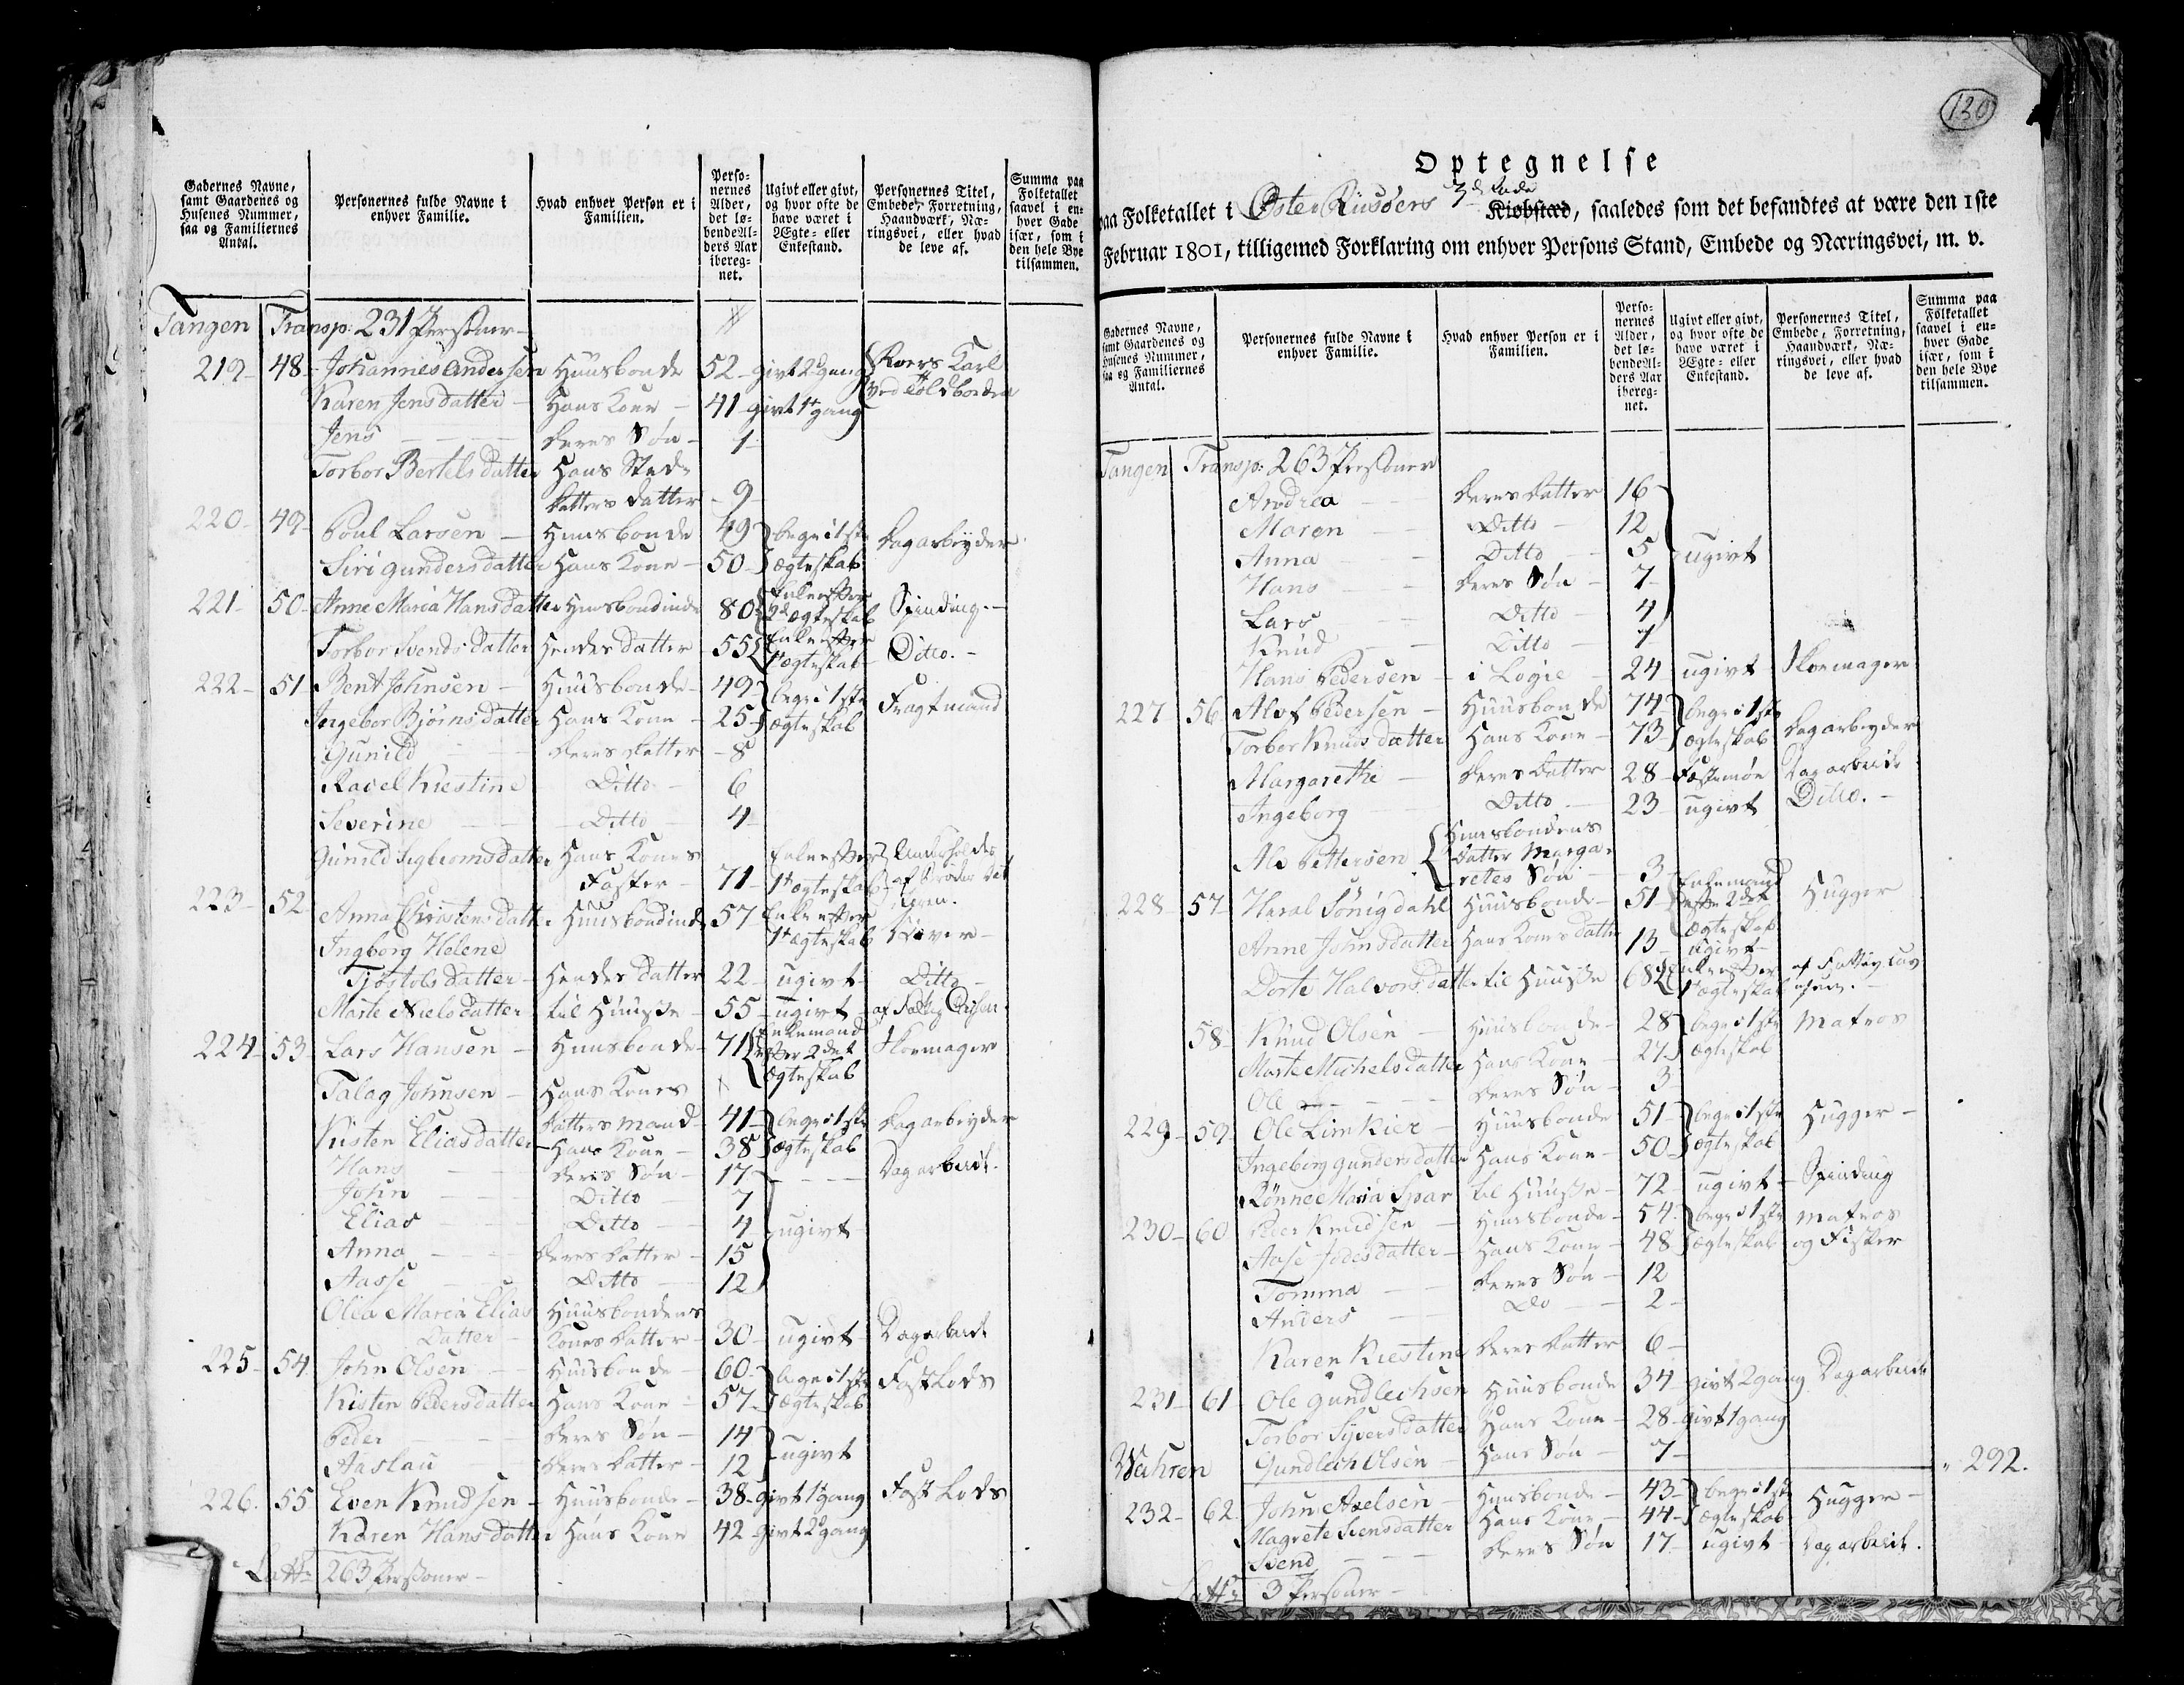 Gadernes Navne, samt Gaardenes og Husenes Nummer, saa og Familiernes Antal.
Personernes fulde Navne i enhver Familie.
Hvad enhver Person er i Familien.
Personernes Alder, det løbende Alders Aar iberegnet.
Ugivt eller givt, og hvor ofte de have været i Ægte- eller Enkestand.
Personernes Titel, Embede, Forretning, Haandværk, Næringsvei, eller hvad de leve af.
Summa paa Folketallet saavel i enhver Gade især, som i den hele Bye tilsammen.
Tangen Transp: 231 Personer
219 48 Johannes Andersen Huusbonde 52 givt 2 gang Roers Karl
Karen Jensdatter Hans Kone 41 givt 1 gang ved Toldboden
Jens Deres Søn 1
Torbor Bertelsdatter Hans Sted-
datters datter 9
220 49 Poul Larsen Huusbonde 49 begge i 1ste Dagarbeyder
Siri Gundersdatter Hans Kone 50 ægteskab
221 50 Anne Maria Hansdatter Huusbondinde 80 Enke efter 2d ægteskab Spinding
Torbor Svends datter Hendes datter 55 Enke efter 1t ægteskab Ditto
222 51 Bent Johnsen Huusbonde 49 begge i 1ste Fragtmand
Ingebor Bjørnsdatter Hans Kone 25 ægteskab
Gunild Deres datter 8
Ravel Kiestine Ditto 6
Severine Ditto 4
Gunild Sigbiornsdatter Hans Kones Enke efter Underholdes
Faster 71 1t ægteskab af
223 52 Anna Christensdatter Huusbondinde 57 Enke efter
Ingborg Helene 1t ægteskab
Tjøstolsdatter Hendes datter 22 ugivt Ditto
Marte Nielsdatter til Huuse 55 ugivt
224 53 Lars Hansen Huusbonde 71 Enkemand efter 2det ægteskab Skoemager
Talag Johnsen Hans Kones
datters mand 41 begge i 1ste Dagarbeyder
Kisten Eliasdatter Hans Kone 38 ægteskab
Hans Deres Søn 17 Dagarbeide
John Ditto 7
Elias Ditto 4 ugivt
Anna Deres datter 15
Aasse Ditto 12
Olea Maria Elias Huusbondens
Datter Kones datter 30 ugivt Dagarbeide
225 54 John Olsen Huusbonde 60 begge i 1ste Fast Lods
Kisten Pedersdatter Hans Kone 57 ægteskab
Peder Deres Søn 14 ugivt
Aaslau Deres datter 12
226 55 Even Knudsen Huusbonde 38 givt 1 gang Fast Lods
Karen Hansdatter Hans Kone 42 givt 2 gang
Latt: 263 Personer
130
Optegnelse
paa Folketallet i Øster Riisøers 3de Rode Kiøbstæd, saaledes som det befandtes at være den 1ste
Februar 1801, tilligemed Forklaring om enhver Persons Stand, Embede og Næringsvei, m. v.
Gadernes Navne, samt Gaardenes og Husenes Nummer, saa og Familiernes Antal.
Personernes fulde Navne i enhver Familie.
Hvad enhver Person er i Familien.
Personernes Alder, det løbende Alders Aar iberegnet.
Ugivt eller givt, og hvor ofte de have været i Ægte- eller Enkestand.
Personernes Titel, Embede, Forretning, Haandværk, Næringsvei, eller hvad de leve af.
Summa paa Folketallet saavel i enhver Gade især, som i den hele Bye tilsammen.
Tangen Transp: 263 Personer
Andrea Deres datter 16
Maren Ditto 12
Anna Ditto 5 ugivt
Hans Deres Søn 7
Lars Ditto 4
Knud Ditto 1
Hans Pedersen i Logie 24 ugivt Skoemager
227 56 Alof Pedersen Huusbonde 74 begge i 1ste Dagarbeyder
Torbor Knudsdatter Hans Kone 73 ægteskab
Margarethe Deres datter 28 Fæstemøe Dagarbeide
Ingeborg Ditto 23 ugivt Ditto
Huusbondens
Als Pettersen datter Marga-
retes Søn 3
228 57 Haral Sønigdahl Huusbonde 51 Enkemand efter 2det ægteskab Hugger
Anne Johnsdatter Hans Kones datter 13 ugivt
Dorte Halvorsdatter til Huuse 68 Enke efter 1t ægteskab
58 Knud Olsen Huusbonde 28 begge i 1ste Matros
Marte Michelsdatter Hans Kone 27 ægteskab
Ole Deres Søn 3
229 59 Ole Limkier Huusbonde 51 begge i 1ste Hugger
Ingeborg Gundersdatter Hans Kone 50 ægteskab
Rønne Maria Spar til Huuse 72 ugivt Spinding
230 60 Peer Knudsen Huusbonde 54 begge i 1ste Matros
Aase Jodesdatter Hans Kone 48 ægteskab og Fisker
Tomma Deres Søn 12
Anders Do 2
Karen Kiestine Deres datter 6
231 61 Ole Gundlechsen Huusbonde 34 givt 2 gang Dagarbeide
Torbor Syversdatter Hans Kone 28 givt 1 gang
Gundlech Olsen Hans Søn 7
Wahren 292.
232 62 John Axelsen Huusbonde 43 begge i 1ste Hugger
Magrete Svensdatter Hans Kone 44 ægteskab
Svend Deres Søn 17 ugivt Dagarbeide
Latt: 3 Personer